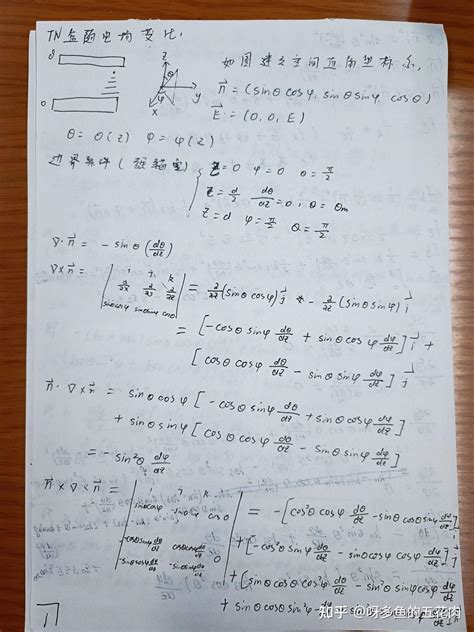 TN盒弱电均变比.
如图建立空间直角坐标系.
d
0
θ
φ
x
y
z
n⃗ = (sinθcosφ, sinθsinφ, cosθ)
E⃗ = (0, 0, E)
θ = θ(z) φ = φ(z)
边界条件(强锚定)
z=0 φ=0 θ=π/2
z=d/2 dθ/dz=0, θ=θm
z=d φ=π/2 θ=π/2
∇·n⃗ = -sinθ(dθ/dz)
∇×n⃗ = | i j k ∂/∂x ∂/∂y ∂/∂z sinθcosφ sinθsinφ cosθ | = ∂/∂z(sinθcosφ)j⃗ - ∂/∂z(sinθsinφ)i⃗
= [-cosθsinφ dθ/dz + sinθcosφ dφ/dz] i⃗
[cosθcosφ dθ/dz - sinθsinφ dφ/dz] j⃗
n⃗·∇×n⃗ = sinθcosφ[-cosθsinφ dθ/dz + sinθcosφ dφ/dz]
+ sinθsinφ[cosθcosφ dθ/dz - sinθsinφ dφ/dz]
= -sin²θ dφ/dz
n⃗×∇×n⃗ = | i j k sinθcosφ sinθsinφ cosθ = -[cos²θcosφ dθ/dz - sinθcosθsinφ dφ/dz] i
+[-cos²θsinφ dθ/dz - sinθcosθcosφ dφ/dz] j
+(sinθcosθcos²φ dθ/dz - sin
sinθcosθsin²φ
1
知乎 @呀多鱼的五花肉